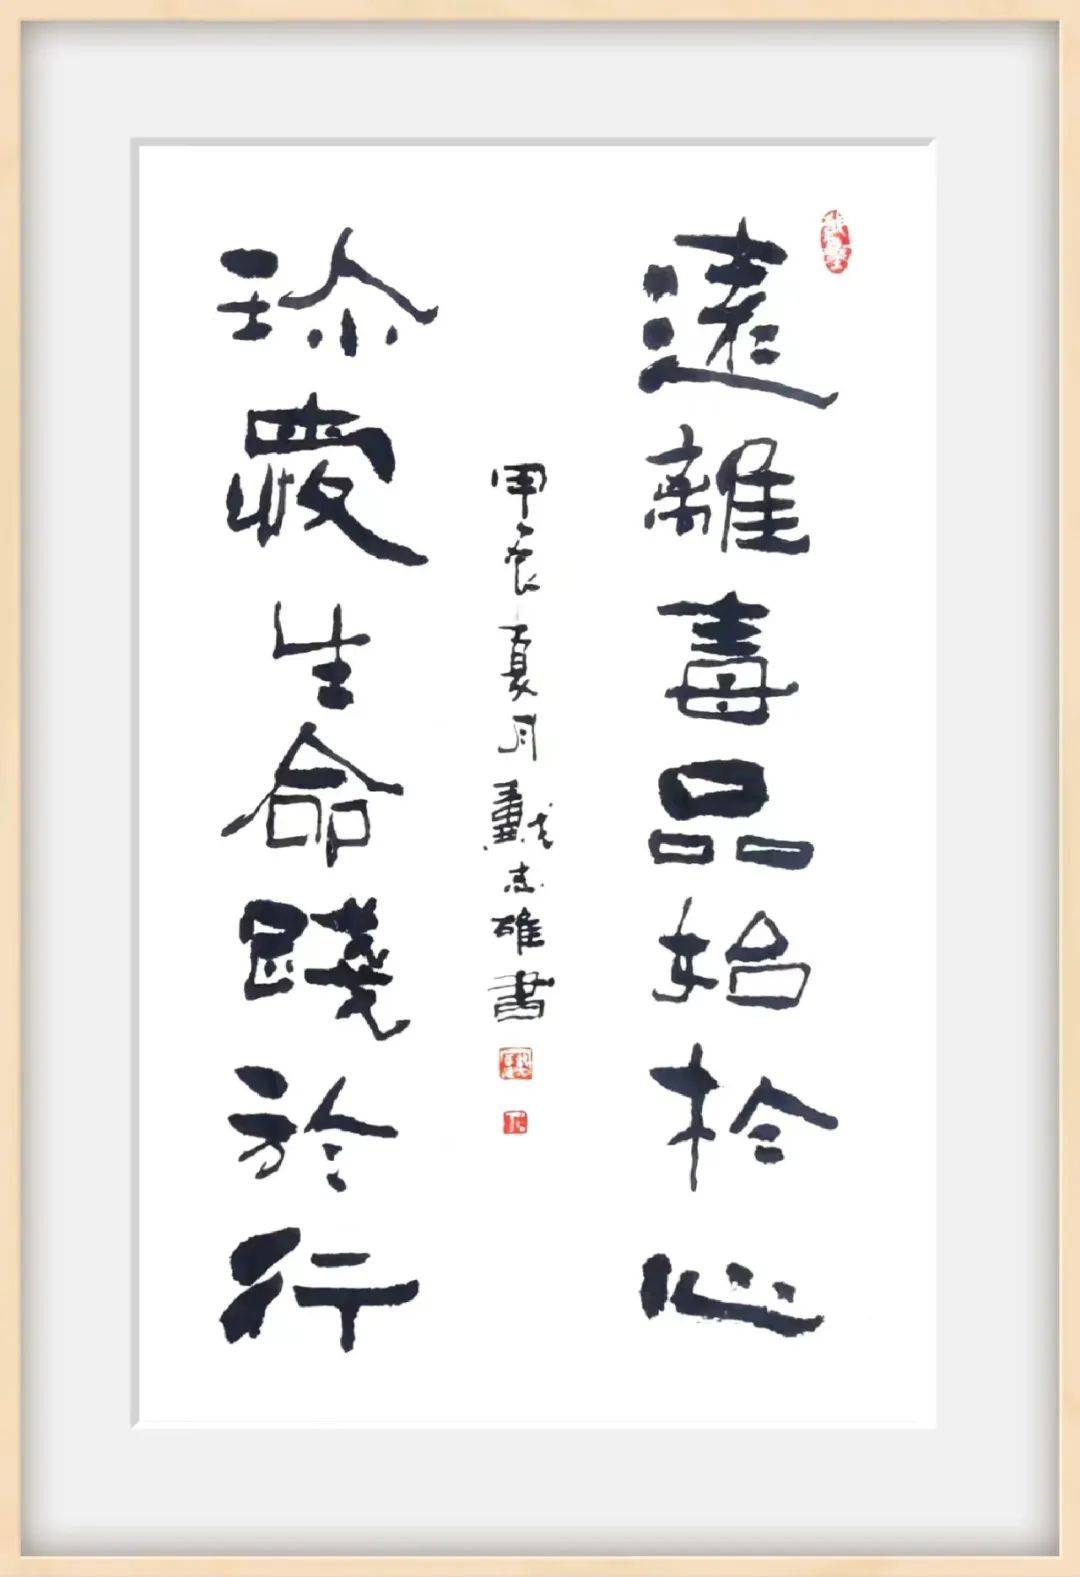 遠離毒品始於心
珍愛生命踐於行
甲辰夏月戴志雄書